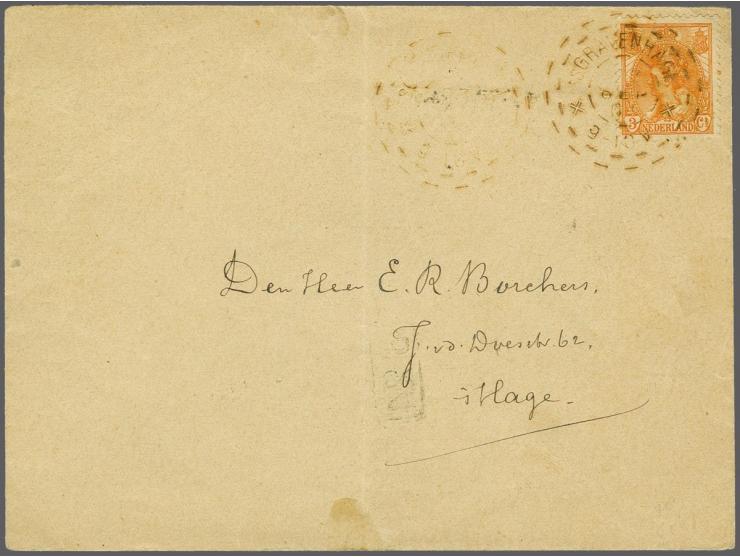 'SGRAVENHAGE
3 NEDERLAND Ct
Den Heer E. R. Borchers.
J. v.d. Doesstr. 62.
's Hage.